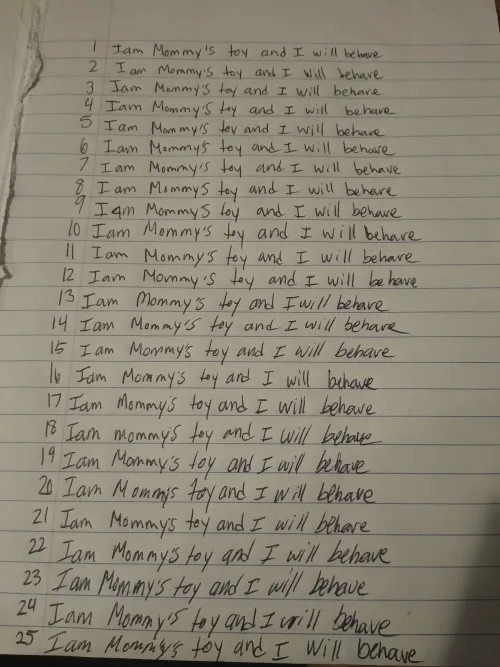 1 I am Mommy's toy and I will behave
2 I am Mommy's toy and I will behave
3 I am Mommy's toy and I will behave
4 I am Mommy's toy and I will behave
5 I am Mommy's toy and I will behave
6 I am Mommy's toy and I will behave
7 I am Mommy's toy and I will behave
8 I am Mommy's toy and I will behave
9 I am Mommy's toy and I will behave
10 I am Mommy's toy and I will behave
11 I am Mommy's toy and I will behave
12 I am Mommy's toy and I will behave
13 I am Mommy's toy and I will behave
14 I am Mommy's toy and I will behave
15 I am Mommy's toy and I will behave
16 I am Mommy's toy and I will behave
17 I am Mommy's toy and I will behave
18 I am mommy's toy and I will behave
19 I am Mommy's toy and I will behave
20 I am Mommy's toy and I will behave
21 I am Mommy's toy and I will behave
22 I am Mommy's toy and I will behave
23 I am Mommy's toy and I will behave
24 I am Mommy's toy and I will behave
25 I am Mommy's toy and I Will behave